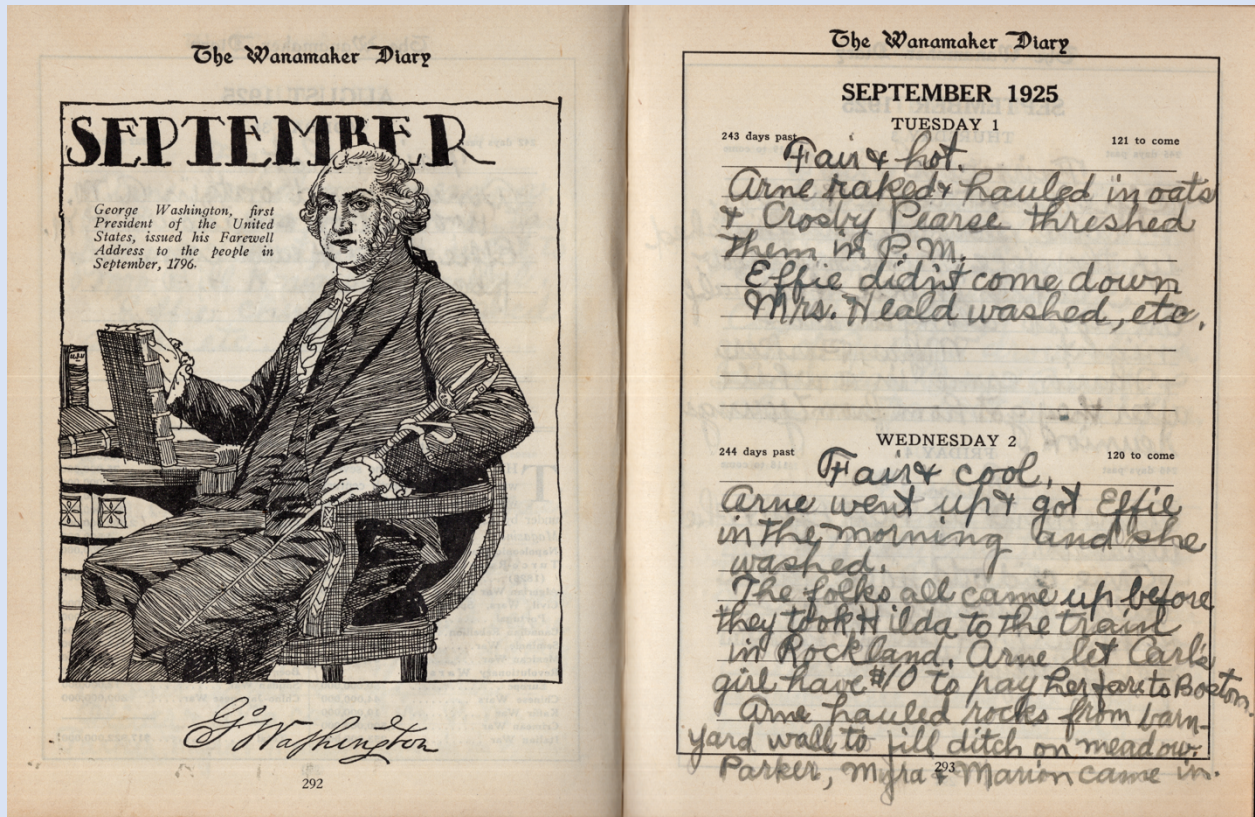 The Wanamaker Diary
SEPTEMBER
George Washington, first
President of the United
States, issued his Farewell
Address to the people in
September, 1796.
G:Washington
292
The Wanamaker Diary
SEPTEMBER 1925
TUESDAY 1
243 days past
121 to come
Fair & hot.
Arne raked & hauled in oats
& Crosby Pearse threshed
them in P.M.
Effie didn't come down
Mrs. Heald washed, etc.
WEDNESDAY 2
244 days past
120 to come
Fair & cool.
Arne went up & got Effie
in the morning and she
washed.
The folks all came up before
they took Hilda to the train
in Rockland. Arne let Carl's
girl have $10 to pay her fare to Boston.
Arne hauled rocks from barn-
yard wall to fill ditch on meadow.
293
Parker, Myra & Marion came in.